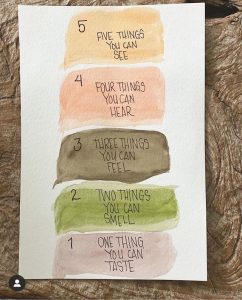 5 FIVE THINGS
YOU CAN
SEE
4 FOUR THINGS
YOU CAN
HEAR
3 THREE THINGS
YOU CAN
FEEL
2 TWO THINGS
YOU CAN
SMELL
1 ONE THING
YOU CAN
TASTE